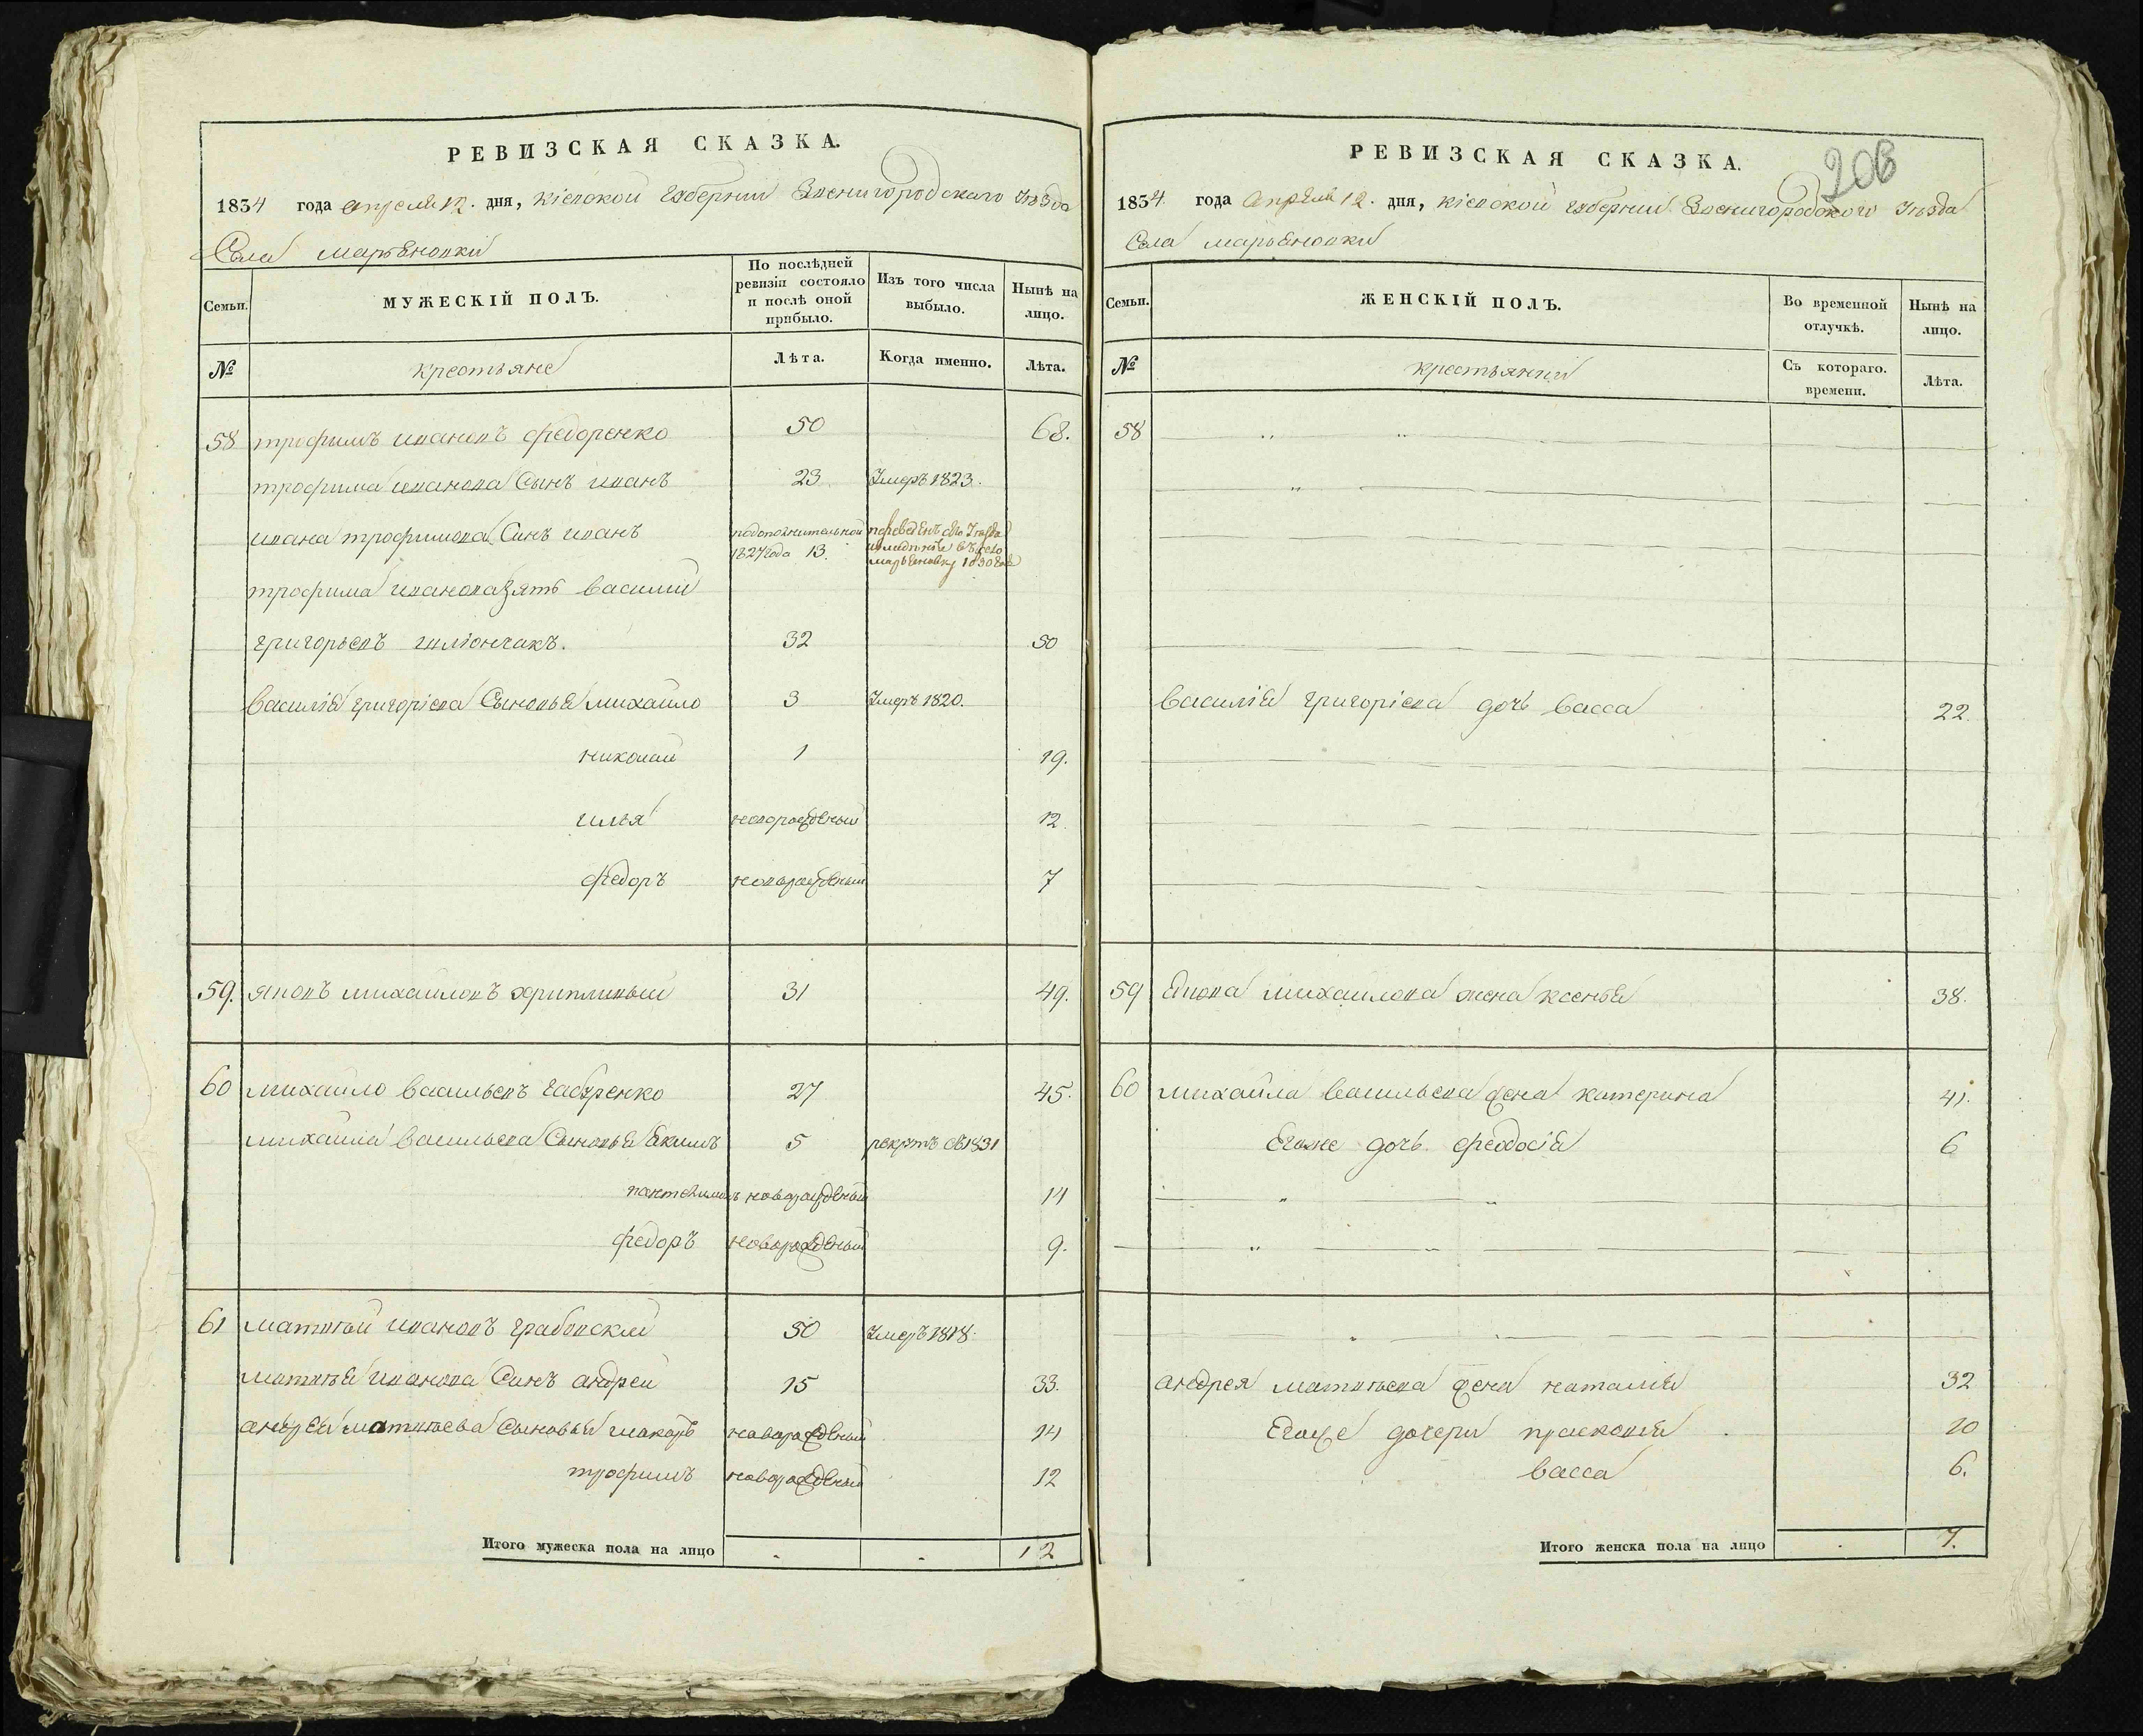 РЕВИЗСКАЯ СКАЗКА.
1834 года апреля 12. дня, кіевской губерніи Звенигородскаго уѣзда
Села марьяновки
Семьи. МУЖЕСКІЙ ПОЛЪ. По послѣдней ревизіи состояло и послѣ оной прибыло. Изъ того числа выбыло. Нынѣ на лицо.
№ крестьяне Лѣта. Когда именно. Лѣта.
58 трофимъ ивановъ федоренко 50 68.
трофима иванова Сынъ иванъ 23 умеръ 1823.
ивана трофимова Синъ иванъ 1827 года 13. переведенъ
трофима иванова зять василий
григорьевъ 32 50
василія григоріева Сыновья михайло 3 умеръ 1820.
николай 1 19.
илья новорожденый 12.
федоръ новорожденый 7
59. яковъ михайловъ хрипливый 31 49.
60 михайло васильевъ 27 45.
михайла васильева Сыновья Екимъ 5 1831
новорожденый 14
федоръ новорожденый 9.
61 матвѣй ивановъ грабовский 50 умеръ 1818.
матвѣя иванова Синъ андрей 15 33.
андрея матвѣева Сыновья макаръ новорожденый 14
трофимъ новорожденый 12
Итого мужеска пола на лицо . . 12
206
РЕВИЗСКАЯ СКАЗКА.
1834 года апреля 12. дня, кіевской губерніи Звенигородского уѣзда
Села марьяновки
Семьи. ЖЕНСКІЙ ПОЛЪ. Во временной отлучкѣ. Нынѣ на лицо.
№ крестьянки Съ котораго. времени. Лѣта.
58
василія григоріева дочь васса 22.
59 михайлова жена ксенья 38.
60 михайла васильева жена катерина 41.
Егоже дочь феодосія 6
андрея матвѣева жена наталія 32
Егоже дочери 10
васса 6.
Итого женска пола на лицо . 7.